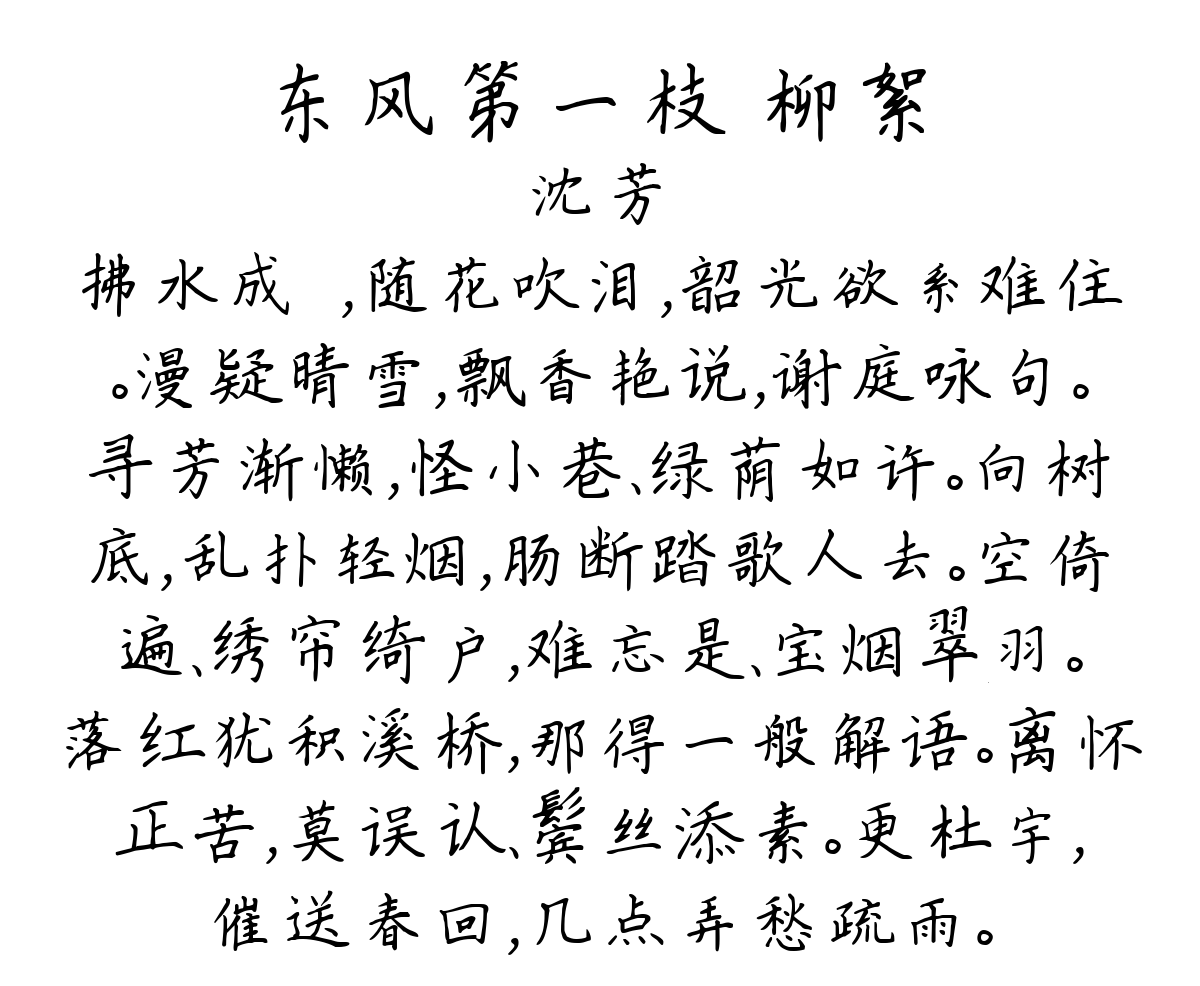 东风第一枝 柳絮
沈芳
拂水成 ,随花吹泪,韶光欲系难住
。漫疑晴雪,飘香艳说,谢庭咏句。
寻芳渐懒,怪小巷、绿荫如许。向树
底,乱扑轻烟,肠断踏歌人去。空倚
遍、绣帘绮户,难忘是、宝烟翠羽。
落红犹积溪桥,那得一般解语。离怀
正苦,莫误认、鬓丝添素。更杜宇,
催送春回,几点弄愁疏雨。